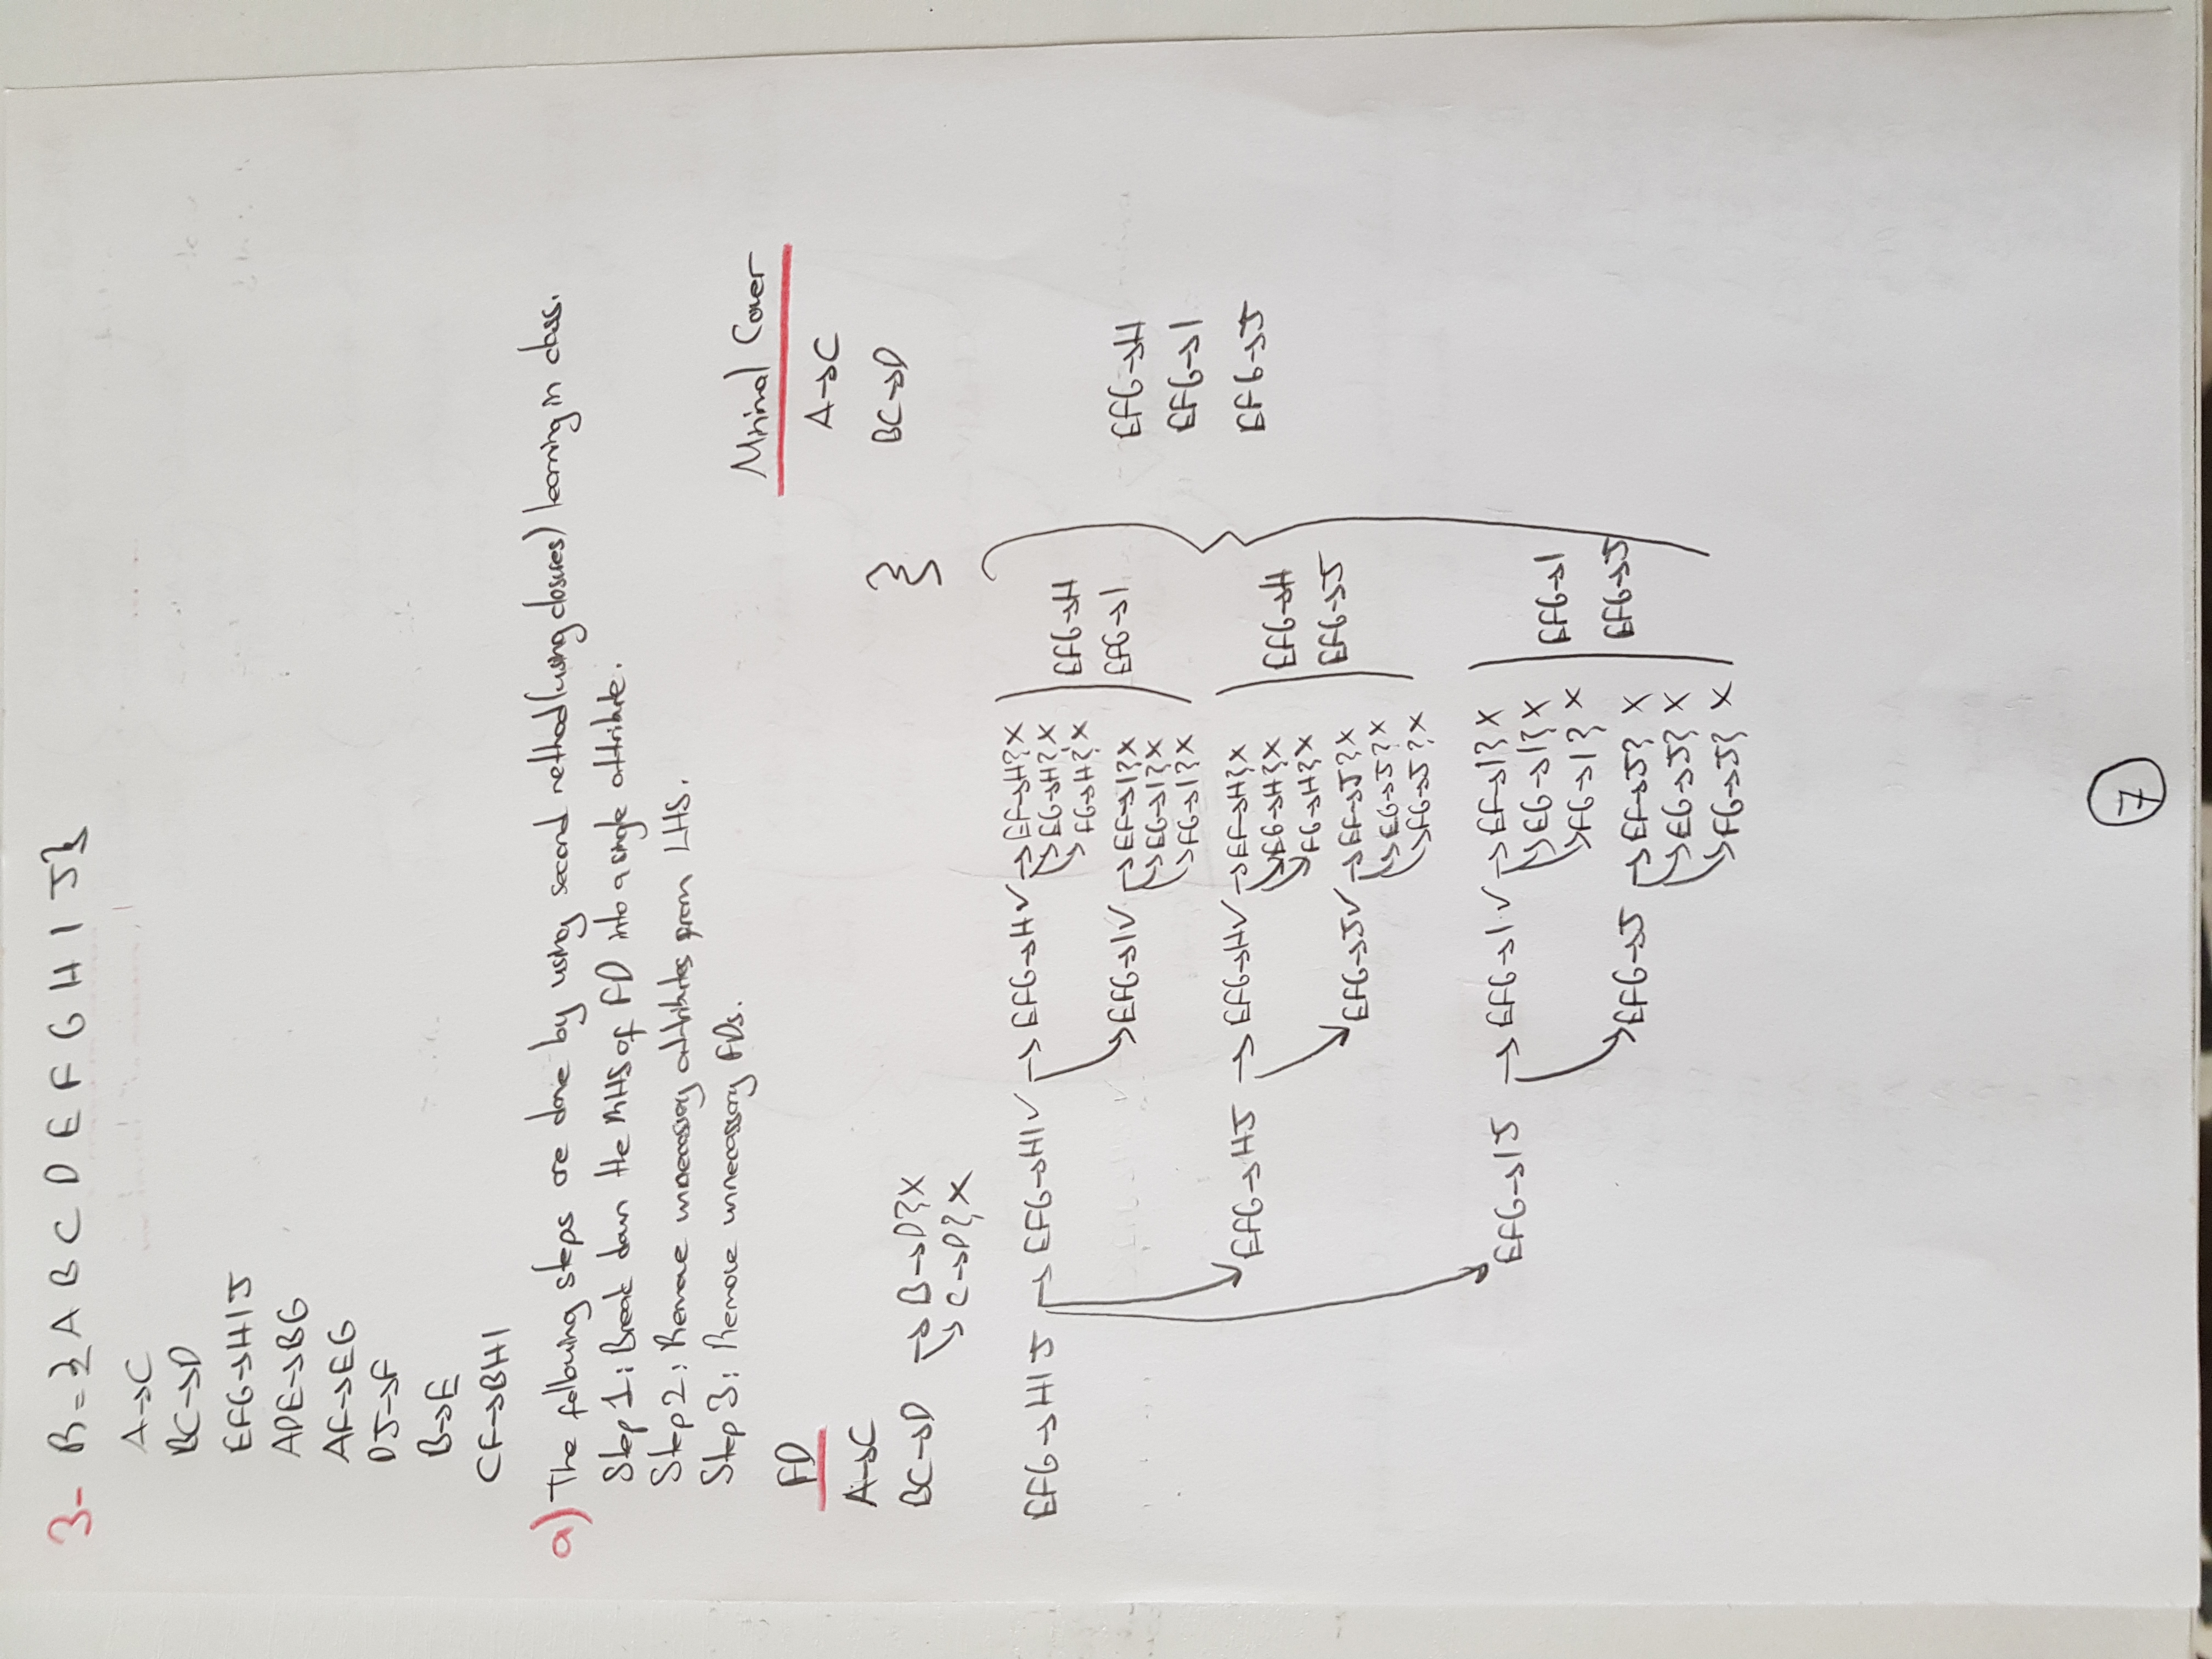 3- R = { A B C D E F G H I J }
A→C
BC→D
EFG→HIJ
ADE→BG
AF→EG
DJ→F
B→E
CF→BHI
a) The following steps are done by using second method (using closures) learning in class.
Step 1: Break down the RHS of FD into a single attribute.
Step 2: Remove unnecessary attributes from LHS.
Step 3: Remove unnecessary FDs.
Minimal Cover
FD
A→C
A→C
BC→D → B→D? X
} BC→D
→ C→D? X
EFG→HIJ → EFG→HI ✓ → EFG→H ✓ → EF→H? X
→ EG→H? X
→ FG→H? X
EFG→H
→ EFG→I ✓ → EF→I? X
→ EG→I? X
→ FG→I? X
EFG→I
→ EFG→HJ → EFG→H ✓ → EF→H? X
→ EG→H? X
→ FG→H? X
EFG→H
→ EFG→J ✓ → EF→J? X
→ EG→J? X
→ FG→J? X
EFG→J
→ EFG→IJ → EFG→I ✓ → EF→I? X
→ EG→I? X
→ FG→I? X
EFG→I
→ EFG→J → EF→J? X
→ EG→J? X
→ FG→J? X
EFG→J
EFG→H
EFG→I
EFG→J
7